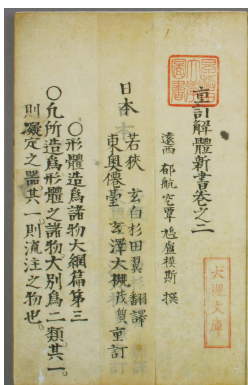 重訂解體新書卷之二
遠西 都航空覃 鳩盧模斯 撰
日本 若狹 玄白杉田翼 翻譯
東奧僊臺 玄澤大槻茂質 重訂
○形體造爲諸物大綱篇第三
○凡所造爲形體之諸物大別爲二類其一
則凝定之器其一則流注之物也
大槻文庫